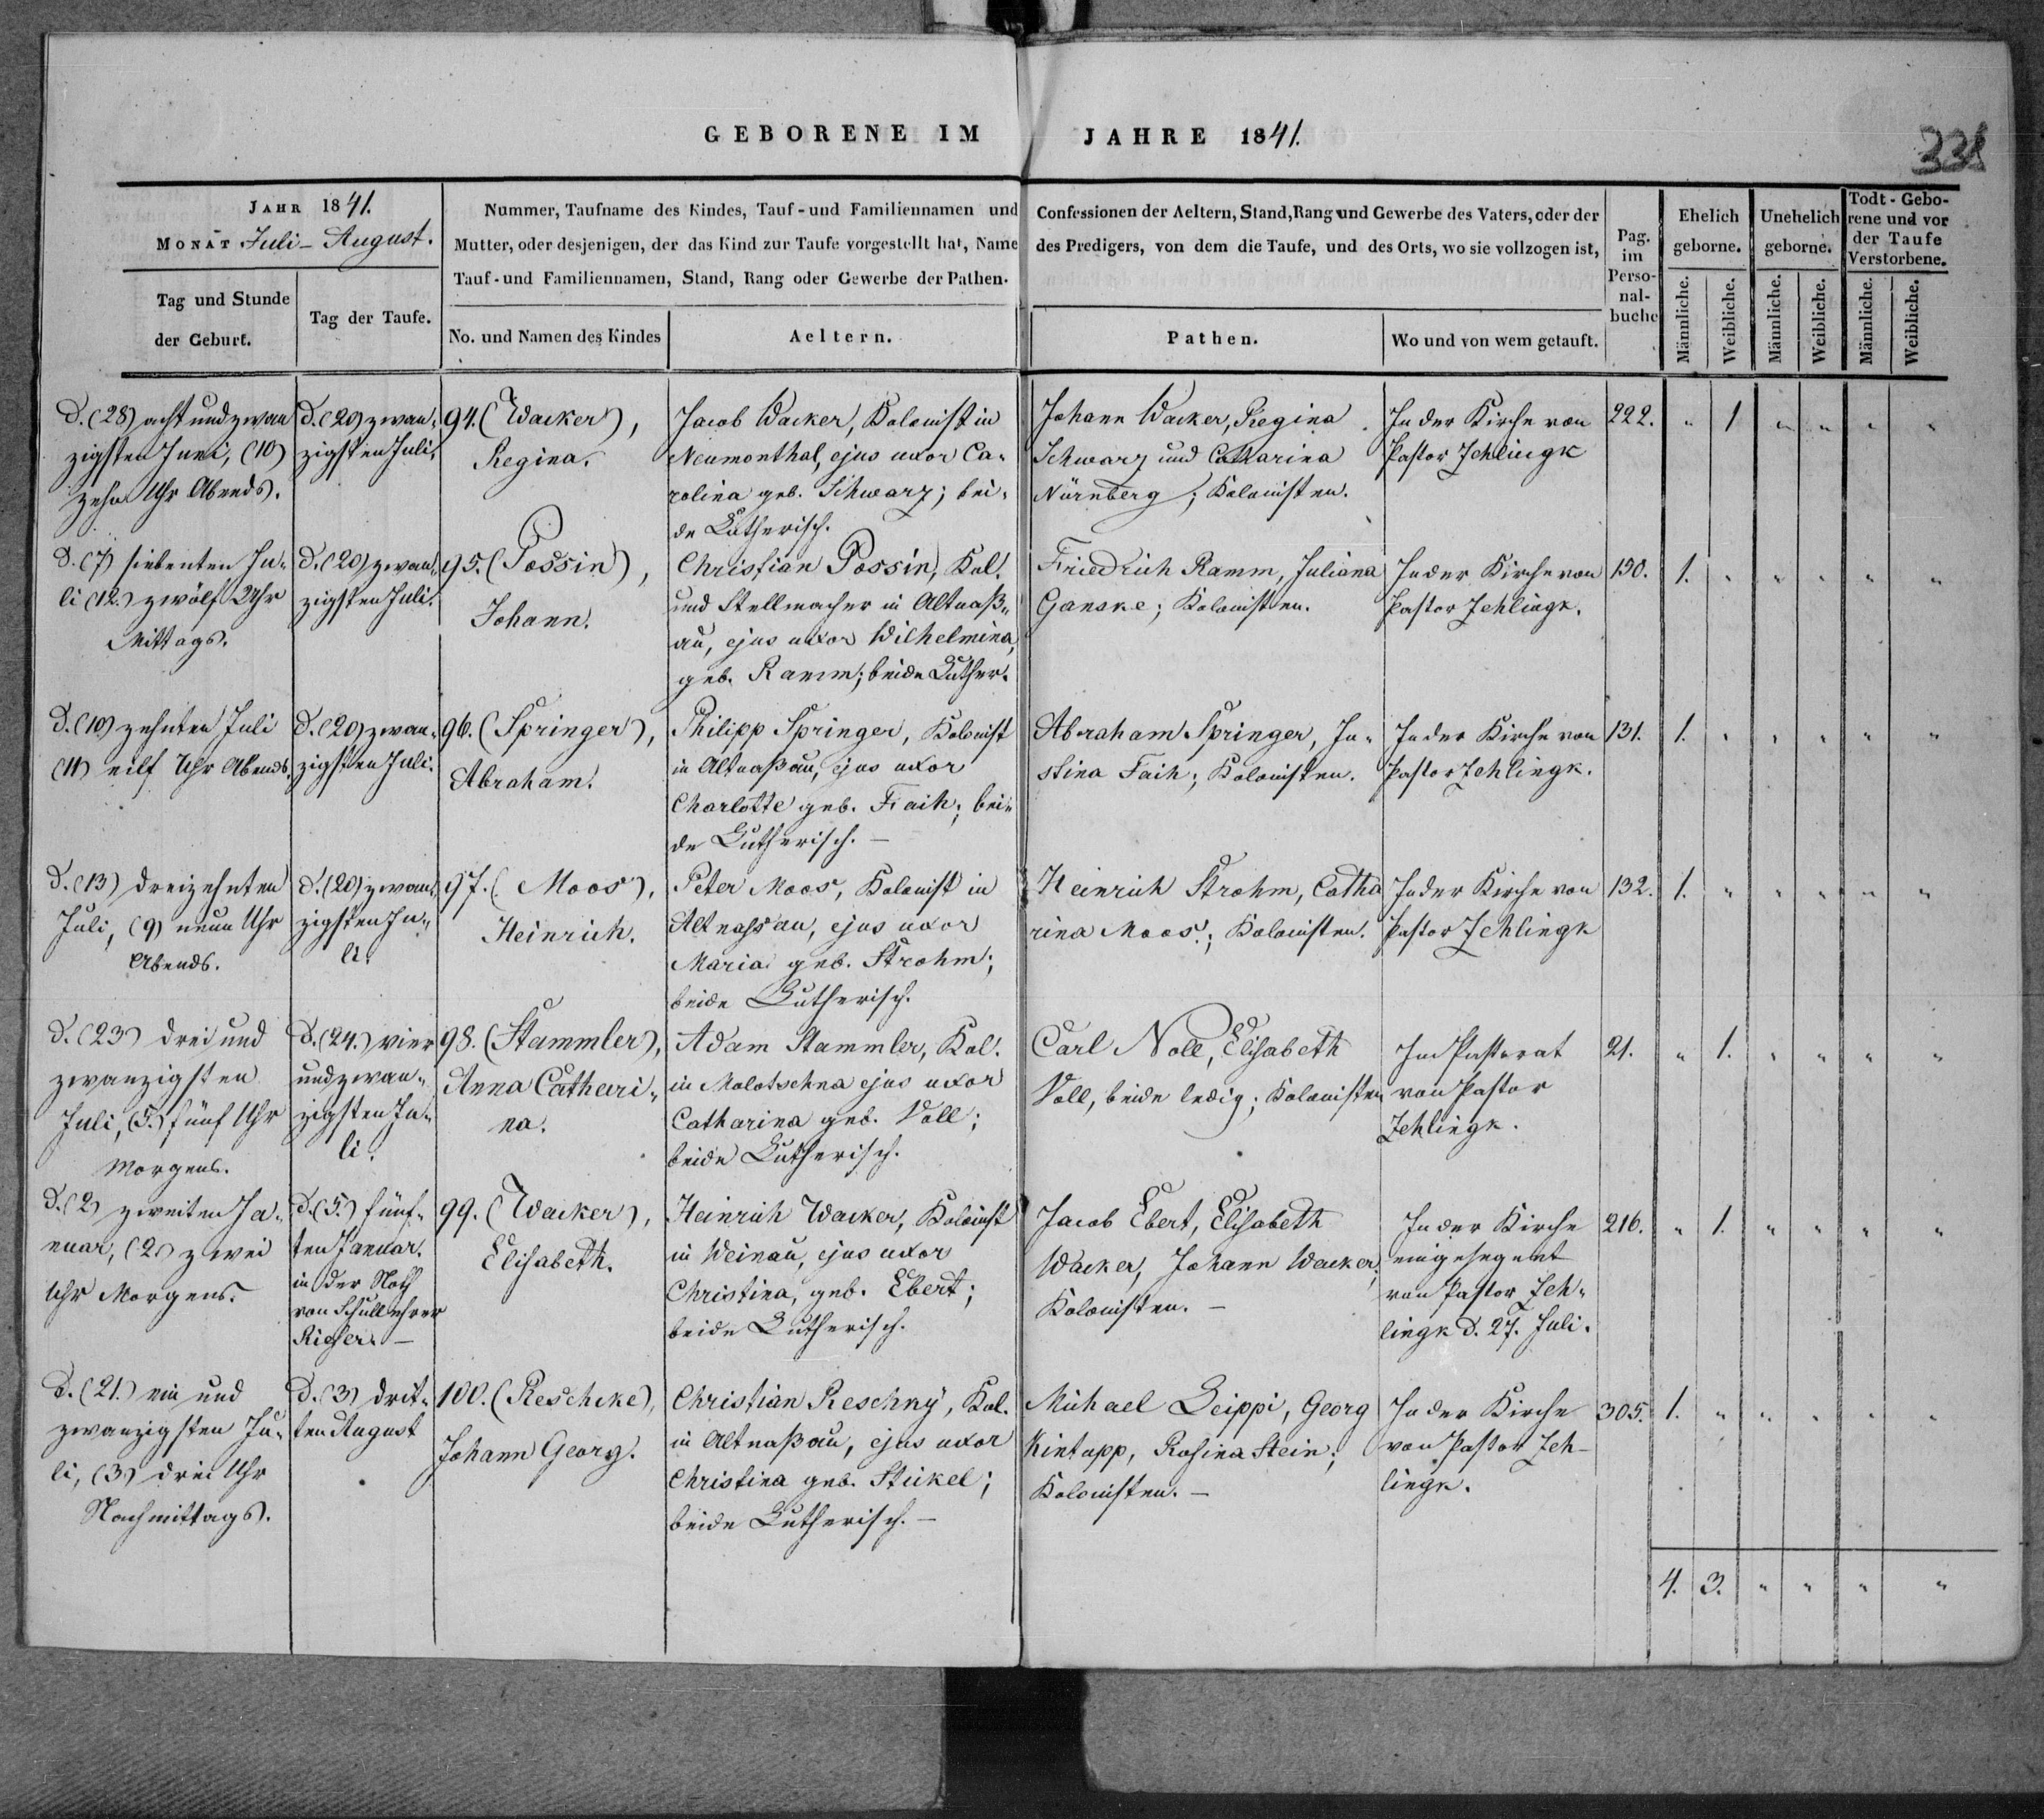 GEBORENE IM JAHRE 1841.
331
JAHR 1841.
MONAT Juli - August.
Nummer, Taufname des Kindes, Tauf- und Familiennamen und
Mutter, oder desjenigen, der das Kind zur Taufe vorgestellt hat, Name
Tauf- und Familiennamen, Stand, Rang oder Gewerbe der Pathen.
Confessionen der Aeltern, Stand, Rang und Gewerbe des Vaters, oder der
des Predigers, von dem die Taufe, und des Orts, wo sie vollzogen ist,
Pag.
im
Perso-
nal-
buche
Ehelich
geborne.
Unehelich
geborne.
Todt-Gebo-
rene und vor
der Taufe
Verstorbene.
Tag und Stunde
der Geburt.
Tag der Taufe.
No. und Namen des Kindes
Aeltern.
Pathen.
Wo und von wem getauft.
Männliche.
Weibliche.
Männliche.
Weibliche.
Männliche.
Weibliche.
d. (28) acht und zwan
zigsten Juni, (10)
zehn Uhr Abends.
d. (20) zwan-
zigsten Juli.
94. (Wacker),
Regina.
Jacob Wacker, Kolonist in
Neumonthal, ejus uxor Ca-
rolina geb. Schwarz; bei-
de Lutherisch.
Johann Wacker, Regina
Schwarz und Catharina
Nürnberg; Kolonisten.
In der Kirche von
Pastor Zehlingk
222. " 1 " " " "
d. (7) siebenten Ju-
li (12.) zwölf Uhr
Mittags.
d. (20) zwan-
zigsten Juli.
95. (Possin),
Johann.
Christian Possin, Kol.
und Stellmacher in Altnaß-
au, ejus uxor Wilhelmina,
geb. Ramm; beide Luther.
Friedrich Ramm, Juliana
Ganske; Kolonisten.
In der Kirche von
Pastor Zehlingk.
150. 1. " " " " "
d. (10) zehnten Juli
(11) eilf Uhr Abends.
d. (20) zwan-
zigsten Juli.
96. (Springer),
Abraham.
Philipp Springer, Kolonist
in Altnaßau, ejus uxor
Charlotte geb. Faih; bei-
de Lutherisch. —
Abraham Springer, Ju-
stina Faih; Kolonisten.
In der Kirche von
Pastor Zehlingk.
131. 1. " " " " "
d. (13) dreizehnten
Juli, (9) neun Uhr
Abends.
d. (20) zwan-
zigsten Ju-
li.
97. (Moos),
Heinrich.
Peter Moos, Kolonist in
Altnassau, ejus uxor
Maria geb. Strohm;
beide Lutherisch.
Heinrich Strohm, Catha
rina Moos; Kolonisten.
In der Kirche von
Pastor Zehlingk
132. 1. " " " " "
d. (23) drei und
zwanzigsten
Juli, (5.) fünf Uhr
Morgens.
d. (24.) vier
und zwan-
zigsten Ju-
li.
98. (Stammler),
Anna Cathari-
na.
Adam Stammler, Kol.
in Molotschna ejus uxor
Catharina geb. Voll;
beide Lutherisch.
Carl Noll, Elisabeth
Voll, beide ledig; Kolonisten
Im Pastorat
von Pastor
Zehlingk.
21. " 1. " " " "
d. (2) zweiten Ja-
nuar, (2.) zwei
Uhr Morgens.
d. (5.) fünf-
ten Januar.
in der Noth
von Schullehrer
99. (Wacker),
Elisabeth.
Heinrich Wacker, Kolonist
in Weinau, ejus uxor
Christina, geb. Ebert;
beide Lutherisch.
Jacob Ebert, Elisabeth
Wacker, Johann Wacker;
Kolonisten. —
In der Kirche
eingesegnet
von Pastor Zeh-
lingk d. 27. Juli.
216. " 1. " " " "
d. (21.) ein und
zwanzigsten Ju-
li, (3) drei Uhr
Nachmittags.
d. (3) drit-
ten August
100. (Reschke),
Johann Georg.
Christian Reschny, Kol.
in Altnaßau, ejus uxor
Christina geb. Stickel;
beide Lutherisch. —
Michael Leippi, Georg
Kintapp, Rosina Stein;
Kolonisten. —
In der Kirche
von Pastor Zeh-
lingk.
305. 1. " " " " "
4. 3. " " " "